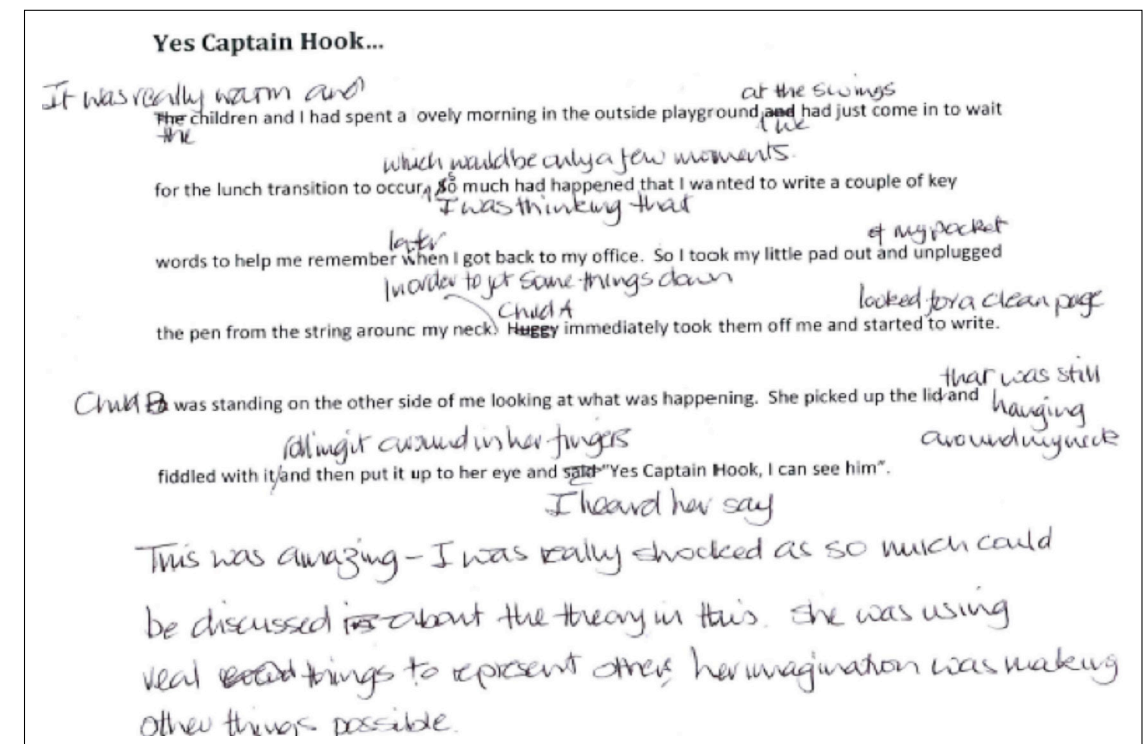 Yes Captain Hook...
It was really warm and
at the swings
The children and I had spent a ovely morning in the outside playground and had just come in to wait
the
I we
which would be only a few moments.
for the lunch transition to occur, So much had happened that I wanted to write a couple of key
s
I was thinking that
later
of my pocket
words to help me remember when I got back to my office. So I took my little pad out and unplugged
In order to jot some things down
looked for a clean page
Child A
the pen from the string arounc my neck. Huggy immediately took them off me and started to write.
that was still
Child B was standing on the other side of me looking at what was happening. She picked up the lid and
hanging
rolling it around in her fingers
around my neck
fiddled with it/and then put it up to her eye and said "Yes Captain Hook, I can see him".
I heard her say
This was amazing - I was really shocked as so much could
be discussed about the theory in this. She was using
real things to represent others, her imagination was making
other things possible.